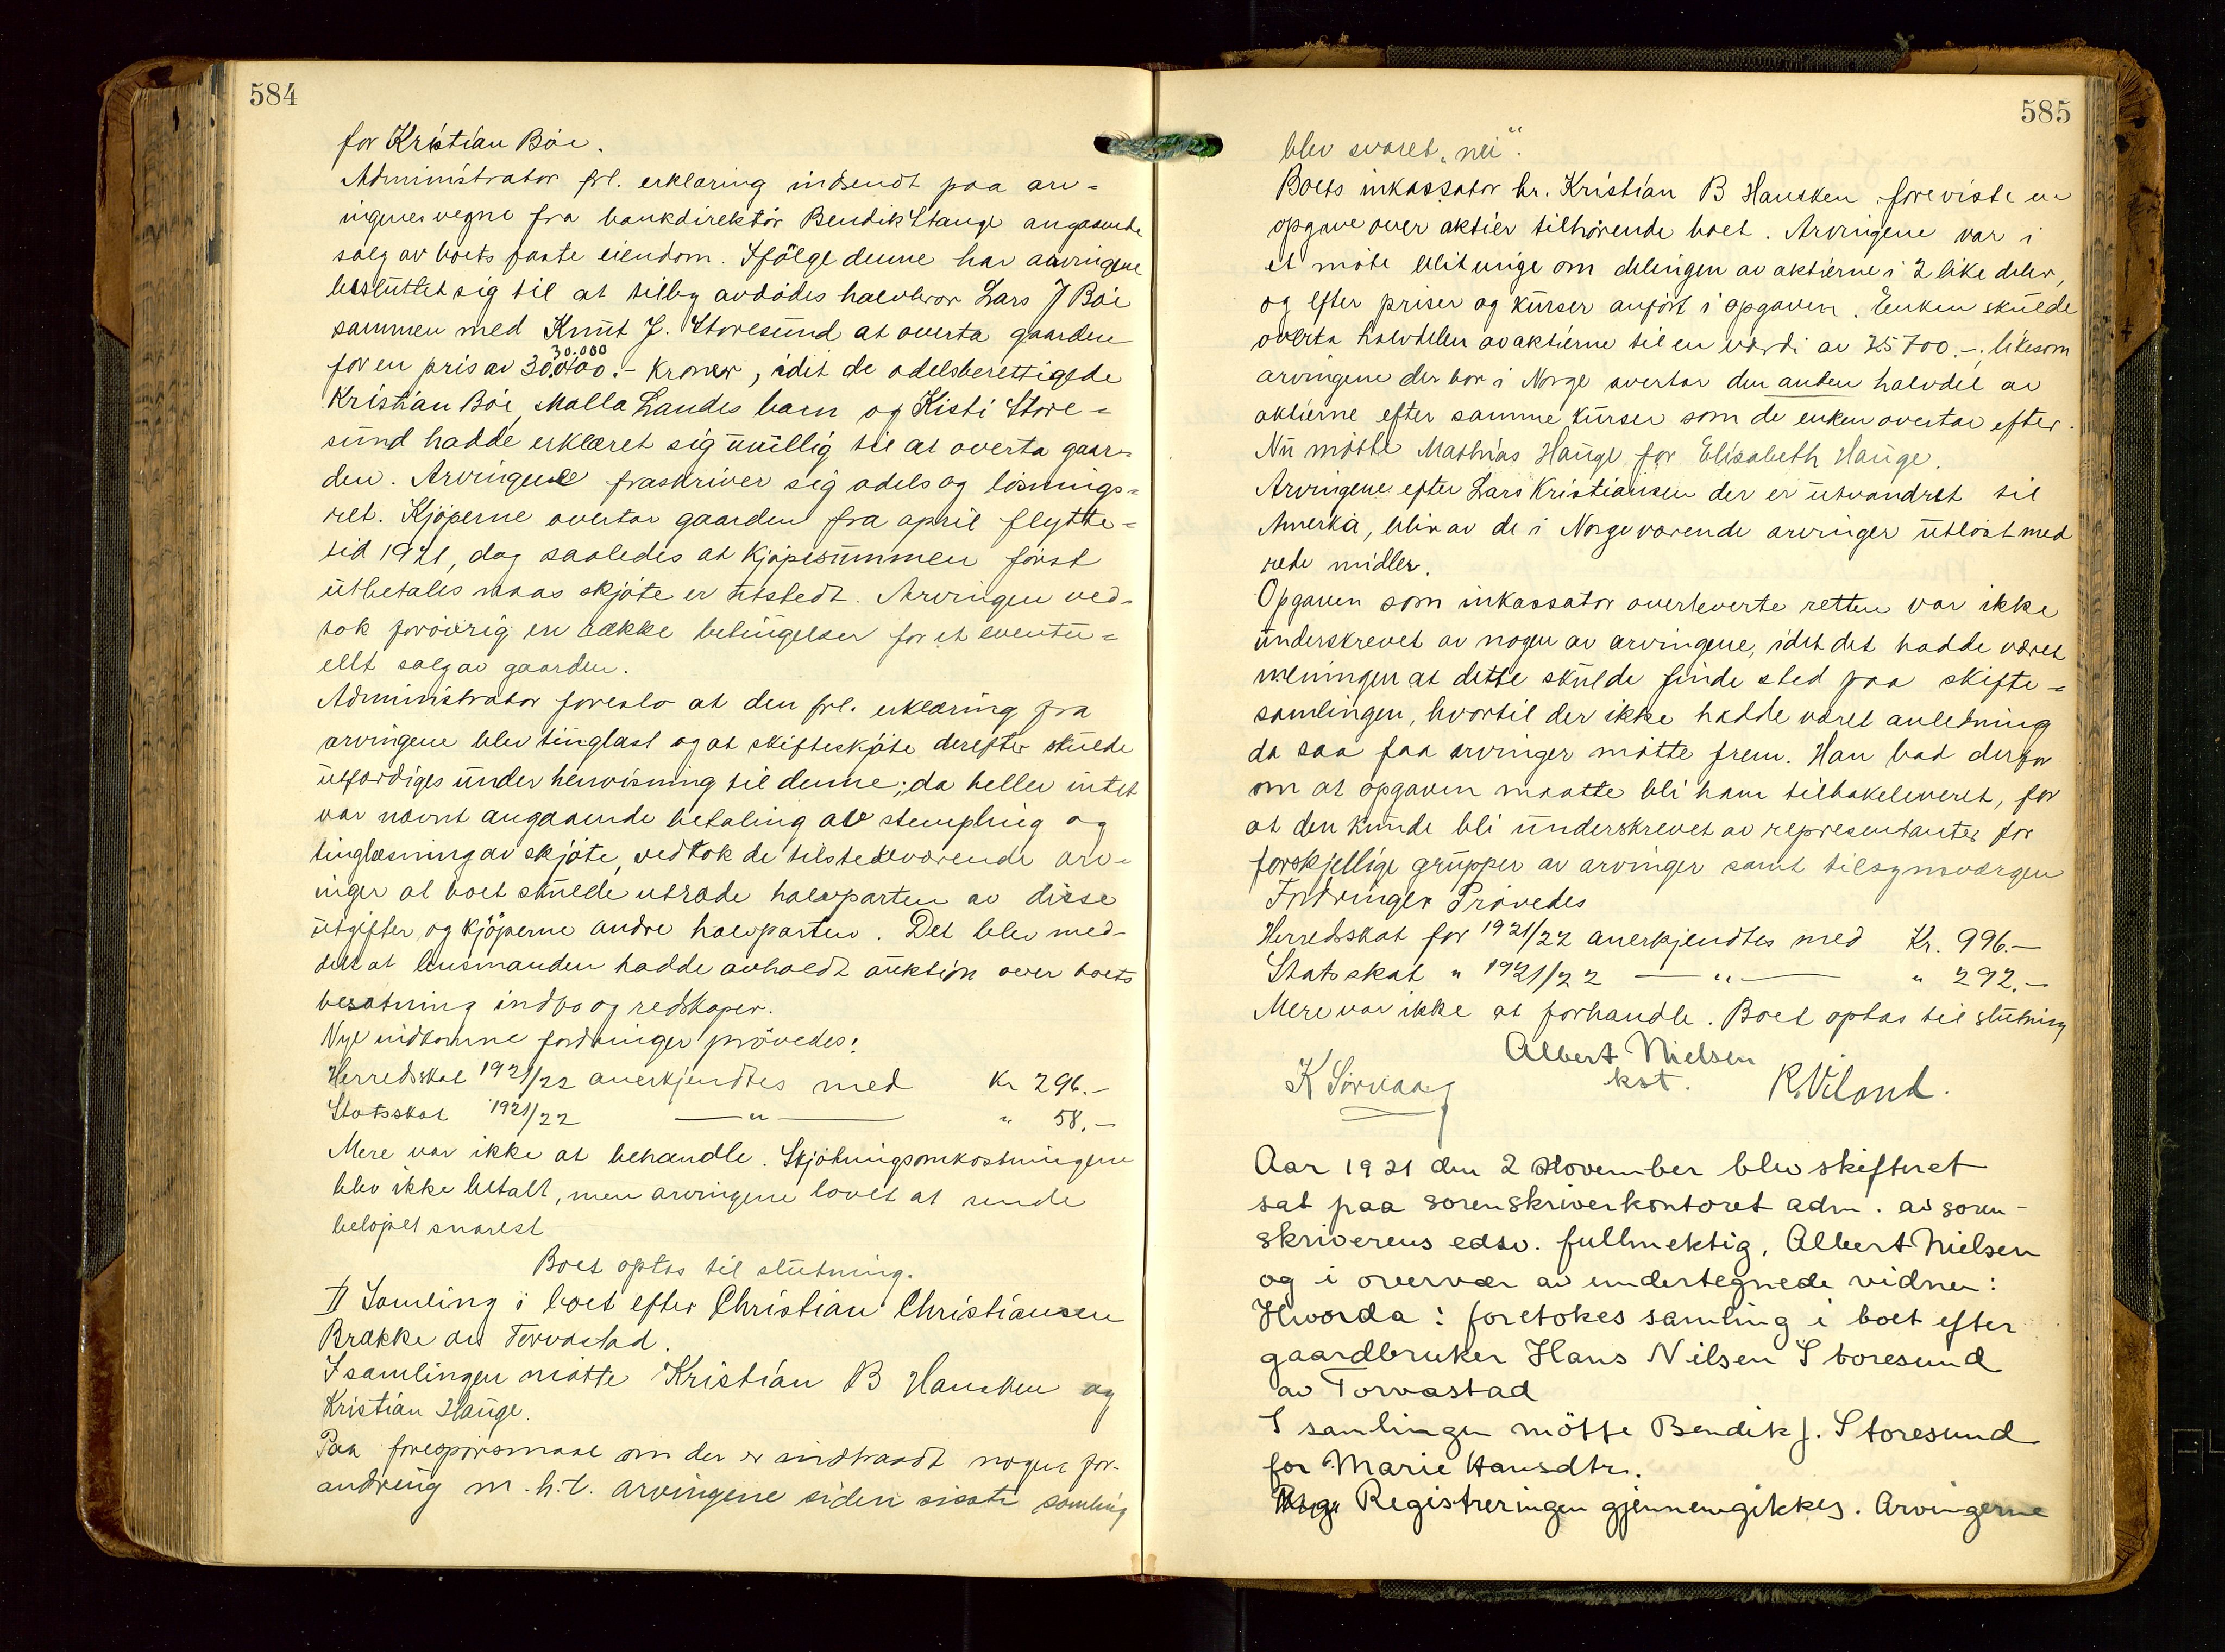 584
for Kristian Böe.
Administrator frl. erklæring indsendt paa arv-
ingenes vegne fra bankdirektör Bendik Stange angaaende
salg av boets faste eiendom. Ifölge denne har arvingene
besluttet sig til at tilby avdödes halvbror Lars J Böe
sammen med Knut J. Storesund at overta gaarden
30.000
for en pris av 30.000.- kroner, idet de odelsberettigede
Kristian Böe, Malla Landes barn og Kisti Store=
sund hadde erklæret sig uvillig til at overta gaar=
den. Arvingene fraskriver sig odels og lösnings=
ret. Kjöperne overtar gaarden fra april flytte=
tid 1921, dog saaledes at kjöpesummen först
utbetales naar skjöte er utstedt. Arvingene ved-
tok forövrig en række betingelser for et eventu=
ellt salg av gaarden.
Administrator foreslo at den frl. erklæring fra
arvingene blev tinglæst og at skifteskjöte derefter skulde
utfærdiges under henvisning til denne; da heller intet
var nævnt angaaende betaling av stempling og
tinglæsning av skjöte, vedtok de tilstedeværende arv-
inger at boet skulde utrede halvparten av disse
utgifter og kjöperne andre halvparten. Det blev med-
delt at lensmanden hadde avholdt auktion over boets
besætning indbo og redskaper.
Nye indkomne fordringer prövedes:
Herredsskat 1921/22 anerkjendtes med Kr 296.-
Statsskat 1921/22 — " — " 58.-
Mere var ikke at behandle. Skjötningsomkostningene
blev ikke betalt, men arvingene lovet at sende
belöpet snarest
Boet optas til slutning.
II Samling i boet efter Christian Christiansen
Brække av Torvastad.
I samlingen mötte Kristian B Hausken og
Kristian Hauge.
Paa forespörsmaal om der er indtraadt nogen for-
andring m.h.t. arvingene siden sidste samling
585
blev svaret „nei".
Boets inkassator hr. Kristian B Hausken foreviste en
opgave over aktier tilhörende boet. Arvingene var i
et möte blit enige om delingen av aktierne i 2 like deler,
og efter priser og kurser anfört i opgaven. Enken skulde
overta halvdelen av aktierne til en værdi av 25700.-. likesom
arvingene der bor i Norge overtar den anden halvdel av
aktierne efter samme kurser som de enken overtar efter.
Nu mötte Mathias Hauge for Elisabeth Hauge.
Arvingene efter Lars Kristiansen der er utvandret til
Amerika, blir av de i Norge værende arvinger utlöst med
rede midler.
Opgaven som inkassator overleverte retten var ikke
underskrevet av nogen av arvingene, idet det hadde været
meningen at dette skulde finde sted paa skifte=
samlingen, hvortil der ikke hadde været anledning
da saa faa arvinger mötte frem. Han bad derfor
om at opgaven maatte bli ham tilbakeleveret, for
at den kunde bli underskrevet av representanter for
forskjellige grupper av arvinger samt tilsynsværgen
Fordringer Prövedes
Herredsskat for 1921/22 anerkjendtes med Kr. 996.-
Statsskat " 1921/22 — " — " 292.-
Mere var ikke at forhandle. Boet optas til slutning
Albert Nielsen
kst.
K Sörvaag R. Viland.
Aar 1921 den 2 November blev skifteret
sat paa sorenskriverkontoret adm. av soren-
skriverens edsv. fullmektig, Albert Nielsen
og i overvær av undertegnede vidner:
Hvorda: foretokes samling i boet efter
gaardbruker Hans Nilsen Storesund
av Torvastad
I samlingen mötte Bendik J. Storesund
for Marie Hansdtr.
Registreringen gjennemgikkes. Arvingerne